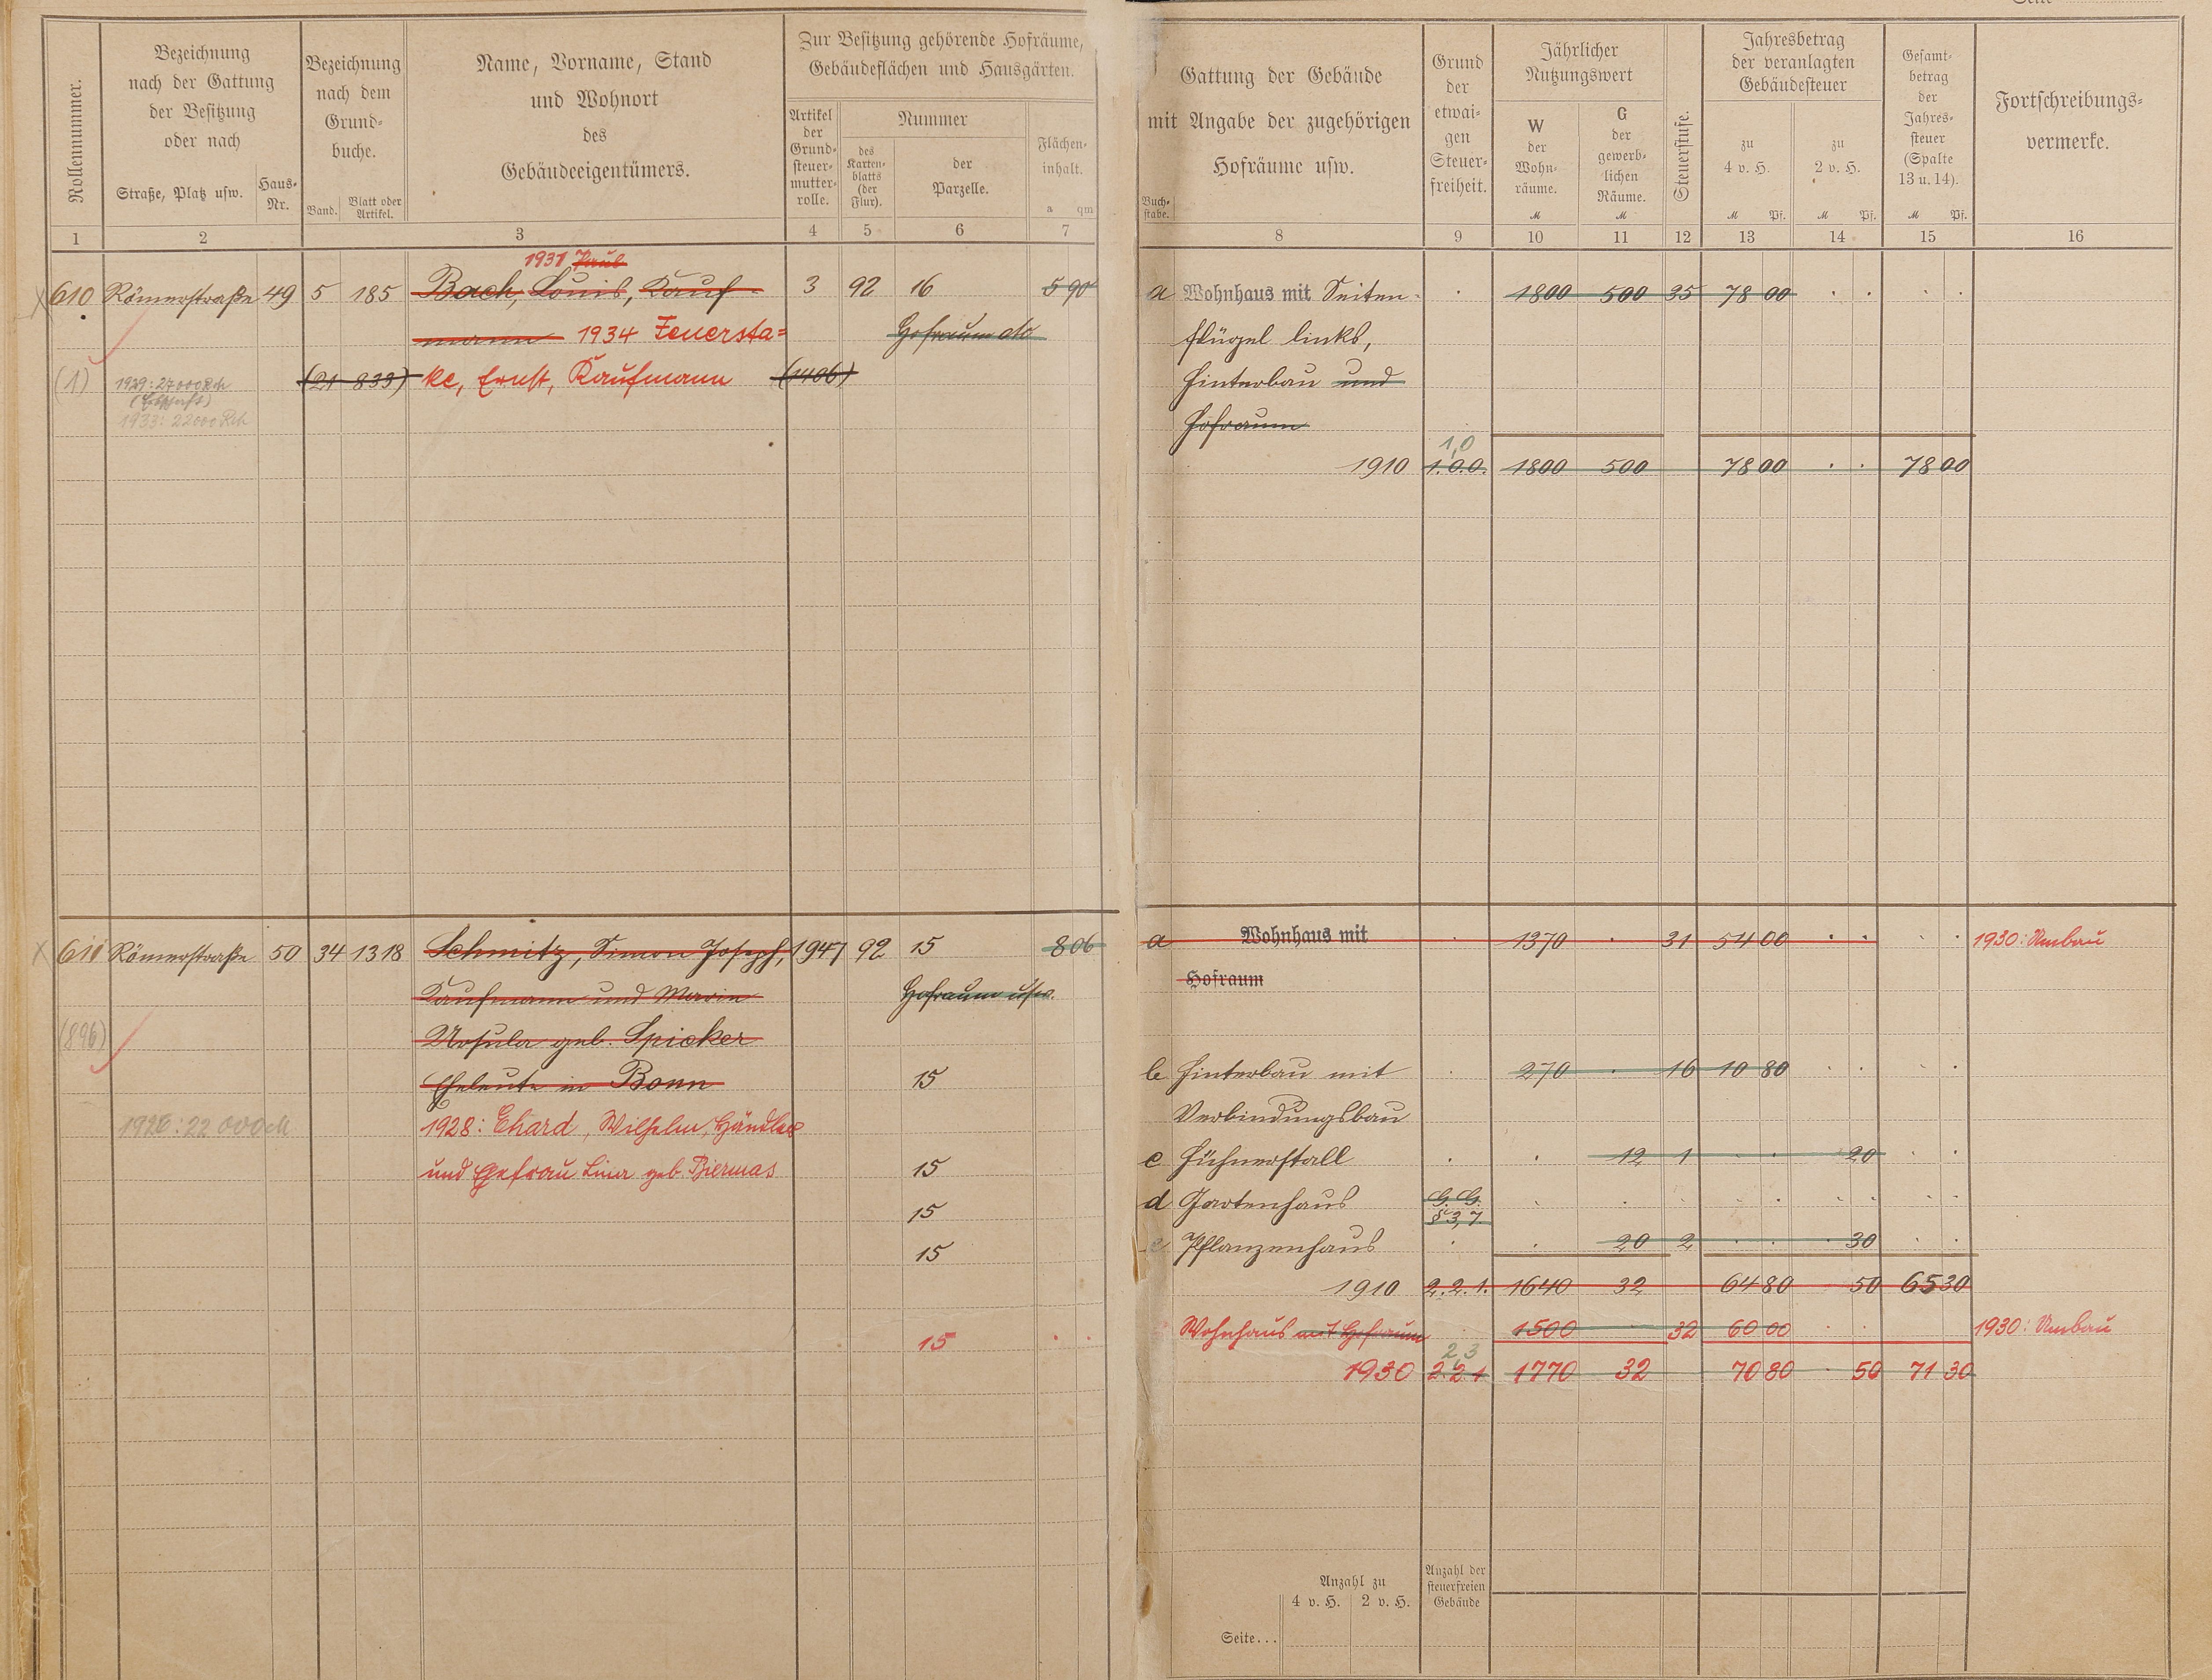 Rollennummer.
Bezeichnung
nach der Gattung
der Besitzung
oder nach
Straße, Platz usw.
Haus-
Nr.
Bezeichnung
nach dem
Grund-
buche.
Band.
Blatt oder
Artikel.
Name, Vorname, Stand
und Wohnort
des
Gebäudeeigentümers.
Zur Besitzung gehörende Hofräume,
Gebäudeflächen und Hausgärten.
Artikel
der
Grund-
steuer-
mutter-
rolle.
Nummer
des
Karten-
blatts
(der
Flur).
der
Parzelle.
Flächen-
inhalt.
a qm
1 2 3 4 5 6 7
1931 Paul
610 Römerstraße 49 5 185 Bach, Louis, Kauf- 3 92 16 5 90
mann 1934 Feuersta=
(1) 1929: 27000 Rch (21 833) ke, Ernst, Kaufmann (1406)
1933: 22000 Rch
611 Römerstraße 50 34 1318 Schmitz, Simon Joseph, 1947 92 15 8 06
Kaufmann und Maria Hofraum usw.
(896) Ursula geb. Spicker
Eheleute in Bonn 15
1926: 22 000 M 1928: Ehard, Wilhelm, Händler
und Ehefrau Lina geb. Biermas 15
15
15
15
Gattung der Gebäude
mit Angabe der zugehörigen
Hofräume usw.
Buch-
stabe.
Grund
der
etwai-
gen
Steuer-
freiheit.
Jährlicher
Nutzungswert
W
der
Wohn-
räume.
M
G
der
gewerb-
lichen
Räume.
M
Steuerstufe.
Jahresbetrag
der veranlagten
Gebäudesteuer
zu
4 v. H.
M Pf.
zu
2 v. H.
M Pf.
Gesamt-
betrag
der
Jahres-
steuer
(Spalte
13 u. 14).
M Pf.
Fortschreibungs-
vermerke.
8 9 10 11 12 13 14 15 16
a Wohnhaus mit Seiten- 1800 500 35 78 00
flügel links,
Hinterbau und
Hofraum
1,0
1910 1.0.0. 1800 500 78 00 78 00
a Wohnhaus mit 1370 31 54 00 1930: Umbau
Hofraum
b Hinterbau mit 270 16 10 80
Verbindungsbau
c Hühnerstall 12 1 20
d Gartenhaus G. G.
§ 3, 7
e Pflanzenhaus 20 2 30
1910 2.2.1. 1640 32 64 80 50 65 30
Wohnhaus mit Hofraum 1500 32 60 00 1930: Umbau
2 3
1930 2.2.1 1770 32 70 80 50 71 30
Anzahl zu
4 v. H. 2 v. H.
Anzahl der
steuerfreien
Gebäude
Seite...